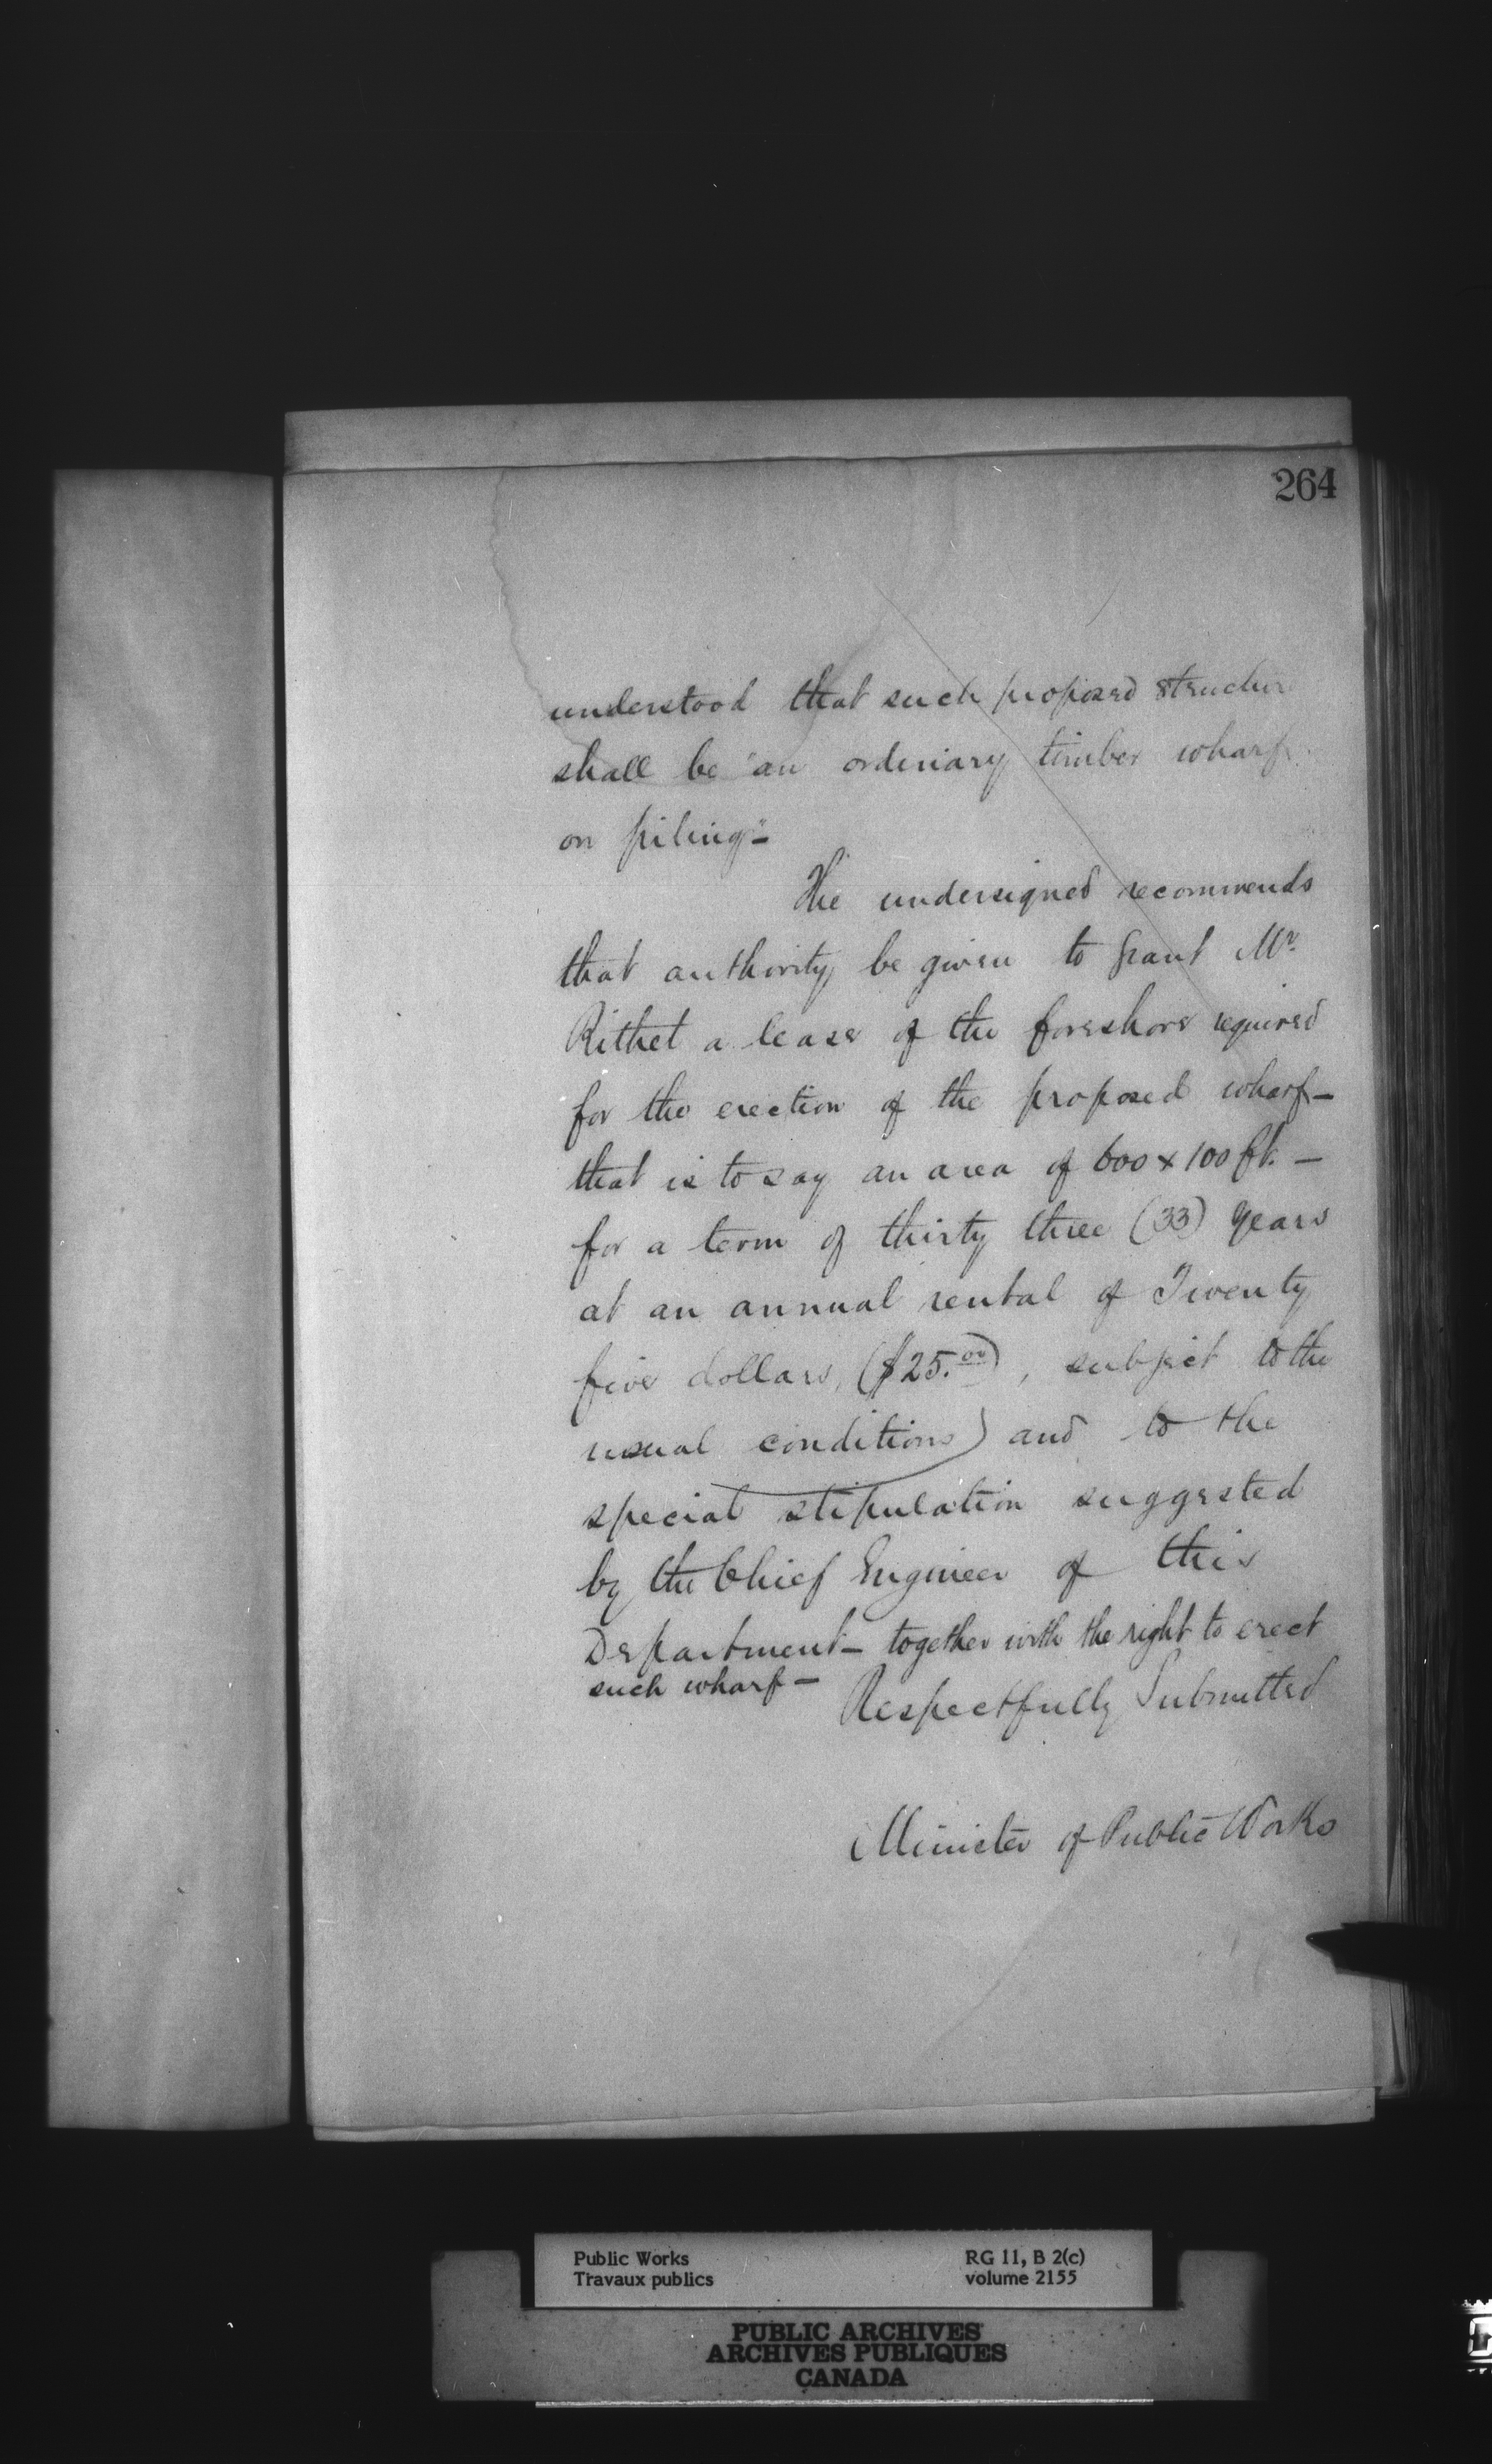 264
understood that such proposed structure
shall be "an ordinary timber wharf
on piling"-
The undersigned recommends
that authority be given to grant Mr.
Rithet a lease of the foreshore required
for the erection of the proposed wharf-
that is to say an area of 600 x 100 ft. -
for a term of thirty three (33) years
at an annual rental of Twenty
five dollars, ($25.00), subject to the
usual conditions) and to the
special stipulation suggested
by the Chief Engineer of this
Department- together with the right to erect
such wharf-
Respectfully Submitted
Minister of Public Works
Public Works
Travaux publics
RG 11, B 2(c)
volume 2155
PUBLIC ARCHIVES
ARCHIVES PUBLIQUES
CANADA